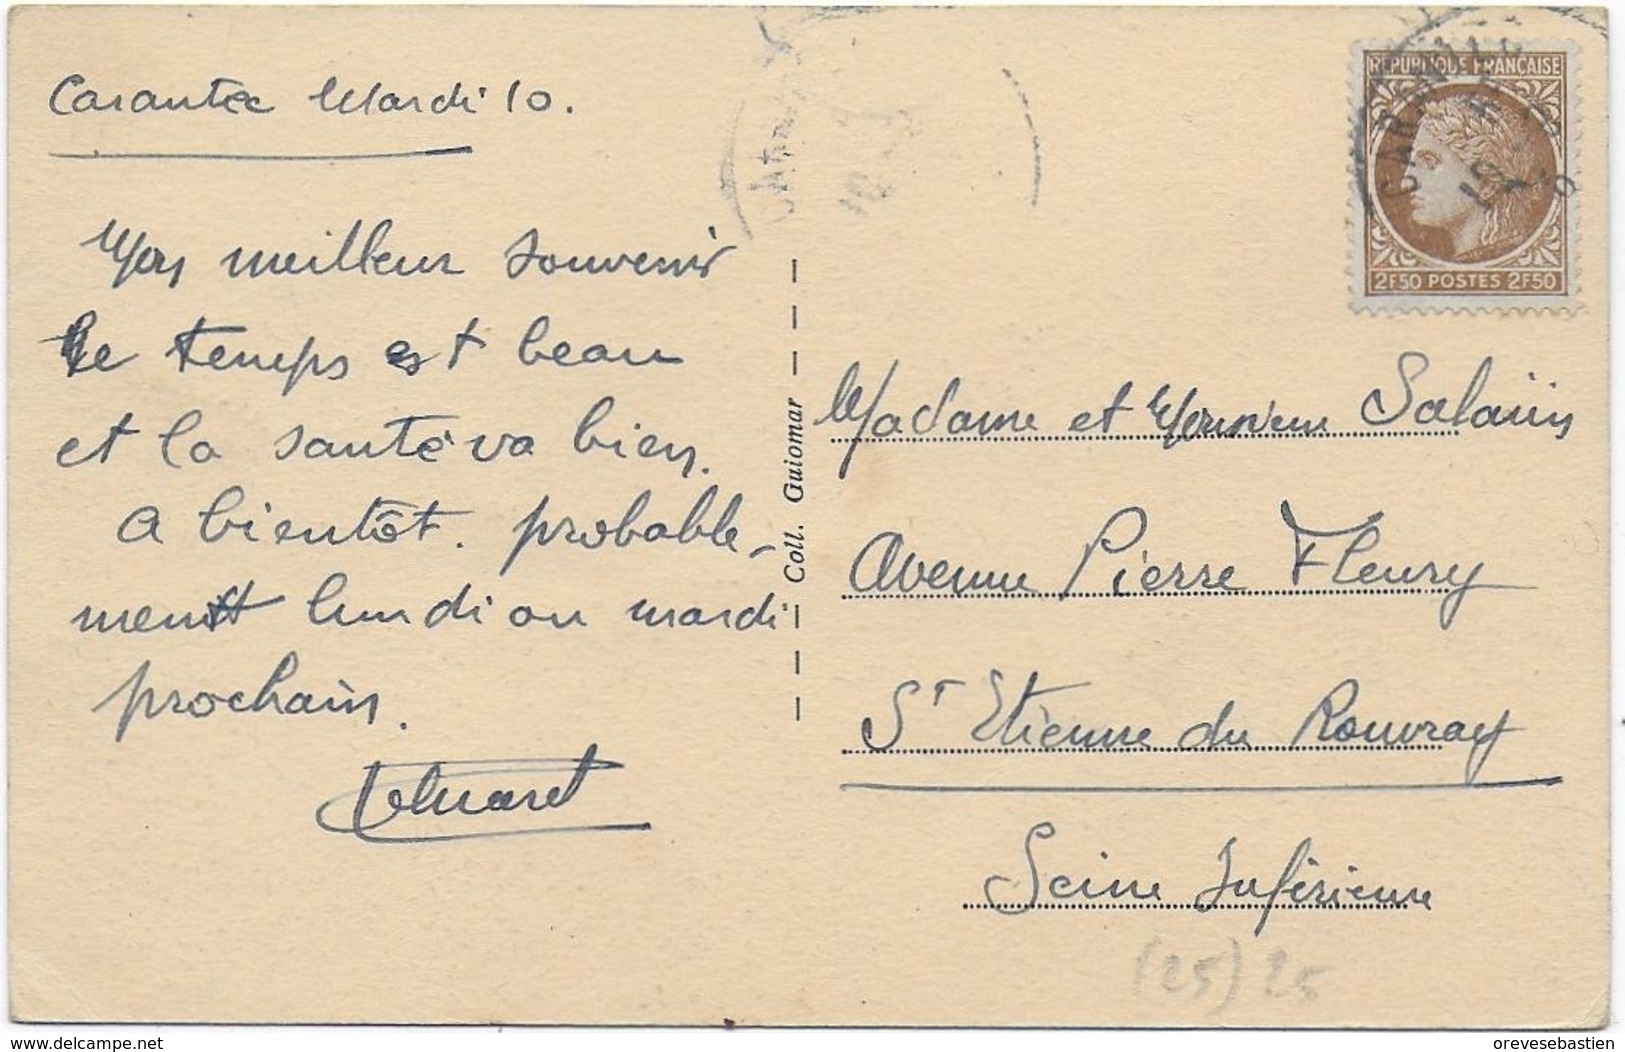 Carantec Mardi 10.
Mon meilleur souvenir
le temps est beau
et la santé va bien.
A bientôt. probable-
ment lundi ou mardi
prochain.
REPUBLIQUE FRANÇAISE
2F50 POSTES 2F50
Coll. Guiomar
Madame et Monsieur Salaün
Avenue Pierre Fleury
St Etienne du Rouvray
Seine Inférieure
(25) 25
www.delcampe.net
orevesebastien